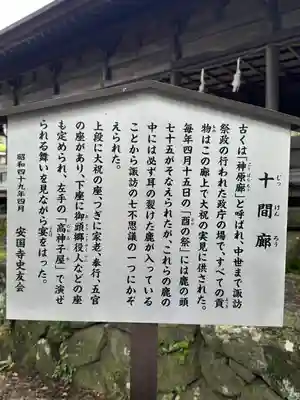 十間廊
じっけんろう
古くは「神原廊」と呼ばれ、中世まで諏訪
祭政の行われた政庁の場で、すべての貢
物はこの廊上で大祝の実見に供された。
毎年四月十五日の「酉の祭」には鹿の頭
七十五がそなえられたが、これらの鹿の
中には必ず耳の裂けた鹿が入っている
ことから諏訪の七不思議の一つにかぞ
えられた。
上段に大祝の座、つぎに家老、奉行、五官
の座があり、下座に御頭郷役人などの座
も定められ、左手の「高神子屋」で演ぜ
られる舞いを見ながら宴をはった。
昭和四十九年四月 安国寺史友会